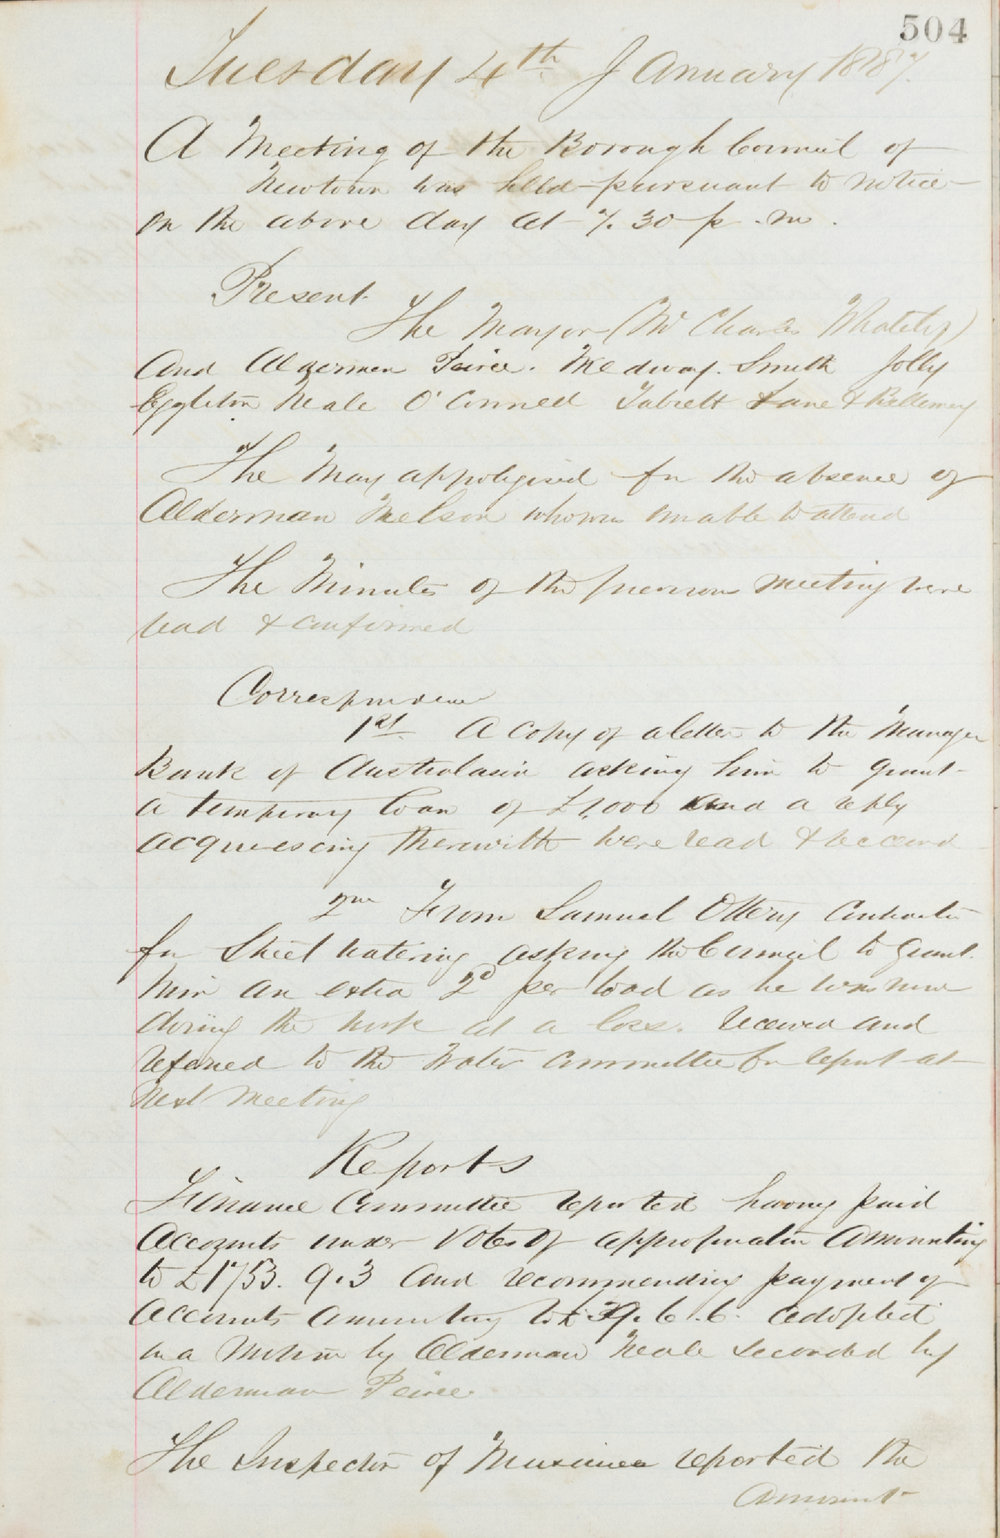 504
Tuesday 4th January 1887.
A Meeting of the Borough Council of
Newtown was held pursuant to notice
on the above day at 7.30 p.m.
Present
The Mayor (Mr Charles Whately)
And Aldermen Peirce. Medway. Smith Jolly
Eggleton Neale O'Connell Tabrett Lane & Bellemey
The May appologised for the absence of
Alderman Melson who was unable to attend
The Minutes of the previous meeting were
read & confirmed
Correspondence
1st. A copy of a letter to the Manager
Bank of Australasia asking him to grant
a temporary loan of £1,000 and a reply
acquiescing therewith were read & received
2nd From Samuel Ottery Contractor
for Street watering asking the Council to grant
him an extra 2d per load as he was now
doing the work at a loss. received and
referred to the Water Committee for report at
next meeting
Reports
Finance Committee reported having paid
Accounts under Votes of appropriation amounting
to £1753. 9.3 and recommending payment of
accounts amounting to £39. 6. 6. adopted
on a Motion by Alderman Neale seconded by
Alderman Peirce.
The Inspector of Nusiances reported the
amount